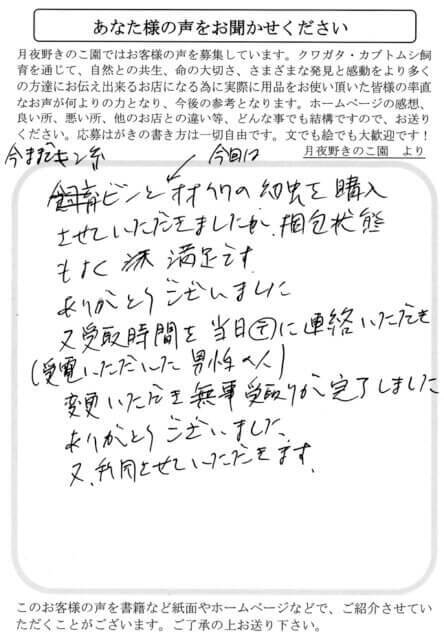 あなた様の声をお聞かせください
月夜野きのこ園ではお客様の声を募集しています。クワガタ・カブトムシ飼
育を通じて、自然との共生、命の大切さ、さまざまな発見と感動をより多く
の方達にお伝え出来るお店になる為に実際に用品をお使い頂いた皆様の率直
なお声が何よりの力となり、今後の参考となります。ホームページの感想、
良い所、悪い所、他のお店との違い等、どんな事でも結構ですので、お送り
ください。応募はがきの書き方は一切自由です。文でも絵でも大歓迎です！
月夜野きのこ園　より
今までキン糸
今回は
ビンとオオクワの幼虫を購入
させていただきましたが、梱包状態
もよく 満足です
ありがとうございました
又受取時間を当日に連絡いただき
(受電いただいた男性の人)
変更いただき無事受取りが完了しました
ありがとうございました
又、利用させていただきます。
このお客様の声を書籍など紙面やホームページなどで、ご紹介させてい
ただくことがございます。ご了承の上お送り下さい。